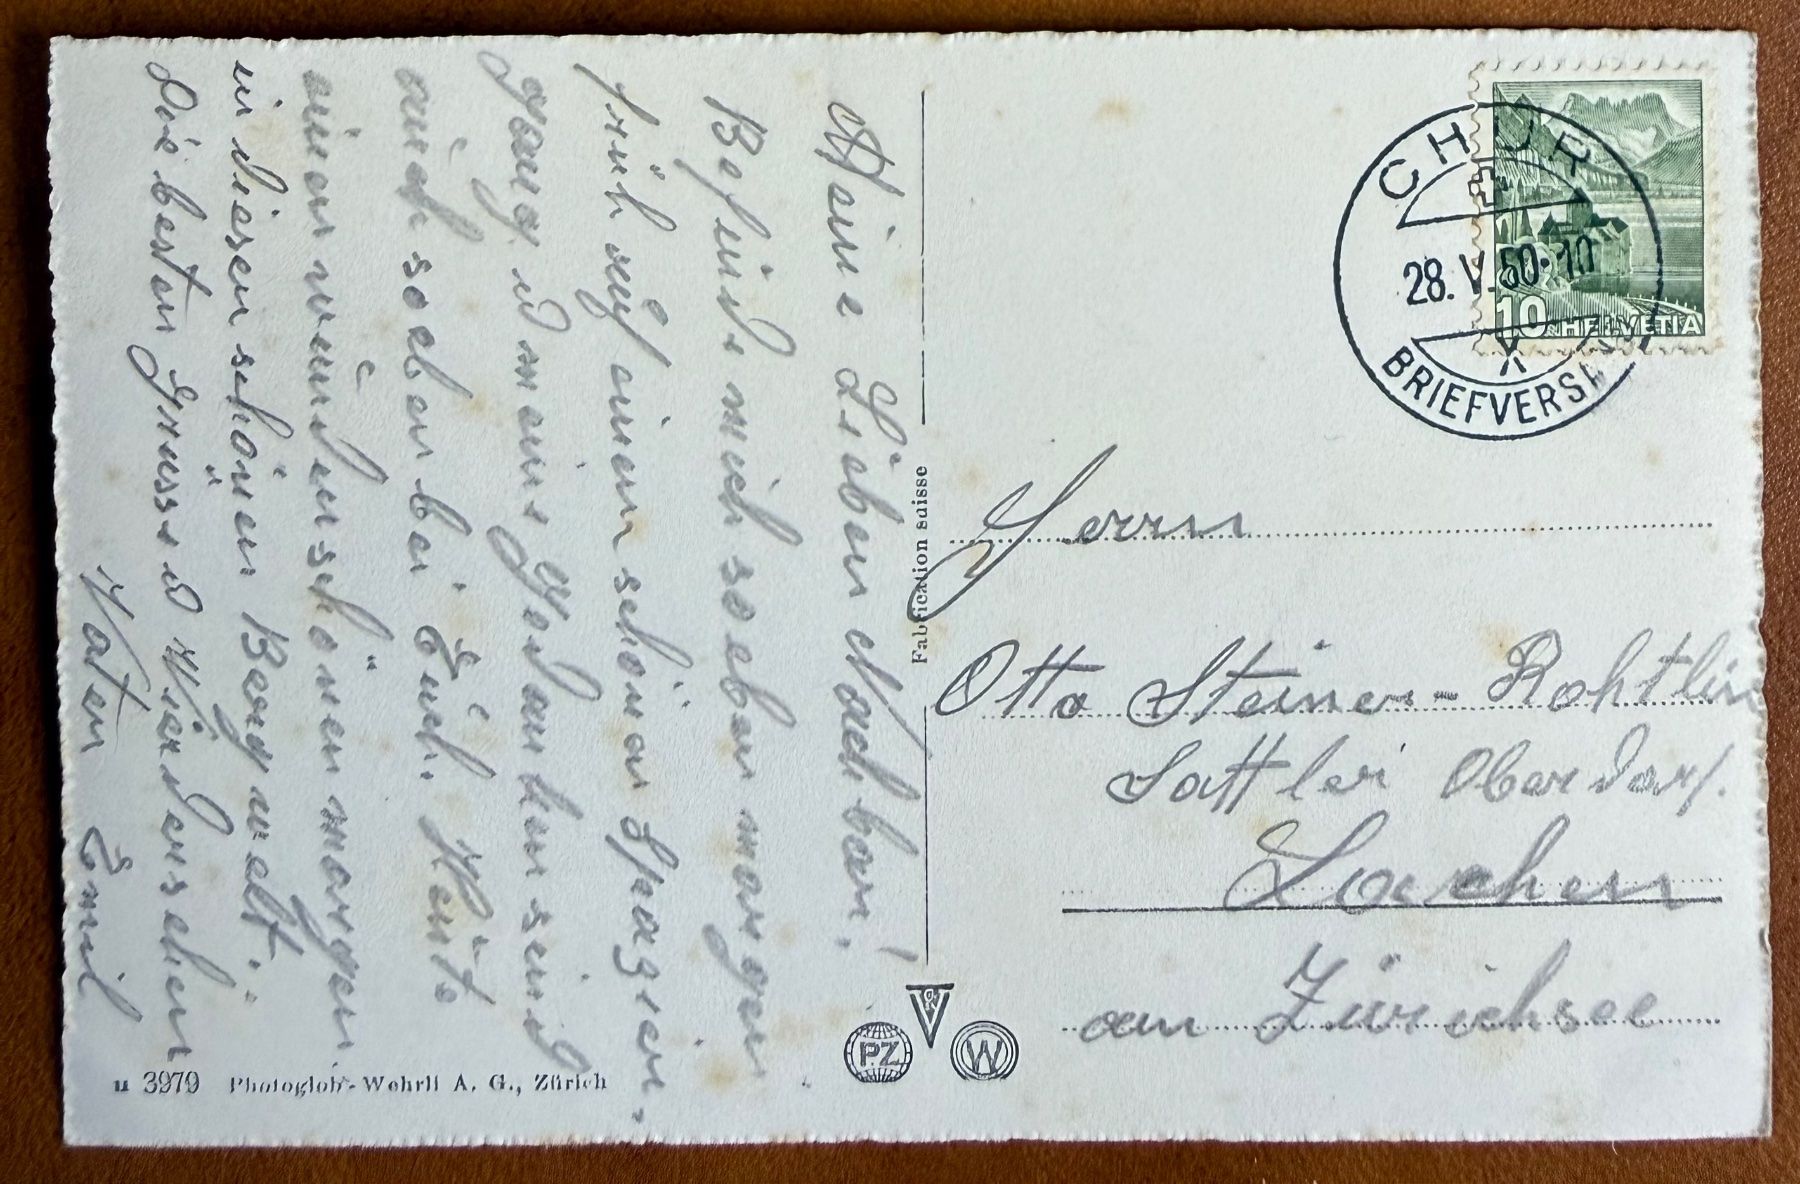 Meine Lieben Nachbarn!
Befinde mich soeben morgen
früh auf einem schönen Spazier-
gang u meine Gedanken sind
auch soeben bei Euch. Heute
einen wunderschönen morgen
in dieser schönen Bergwelt.
Die besten Grüsse u Wiedersehen
Vater Emil
CHUR
28. V. 50-10
BRIEFVERSAND
10 HELVETIA
Fabrication suisse
Herrn
Otto Steiner-Rohtlin
Sattler Oberdorf.
Lachen
am Zürichsee
PZ
W
11 3979 Photoglob-Wehrli A. G., Zürich